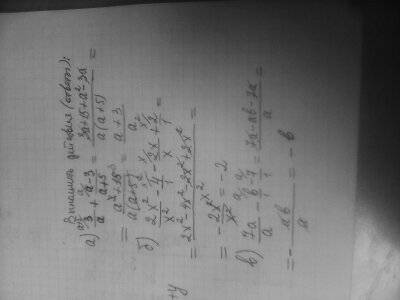 Выполнить действия (ответы):
а) 3/a + (a-3)/(a+5) = (3a+15+a²-3a)/(a(a+5)) =
= (a²+15)/(a(a+5))
б) 2x²/x² - 4/1 - 2x/x + 2/1 =
= (2x²-4x²-2x²+2x²)/x² =
= -2x²/x² = -2
в) 7a/a - b - 7 = (7a-ab-7a)/a =
= - ab/a = -b
+y